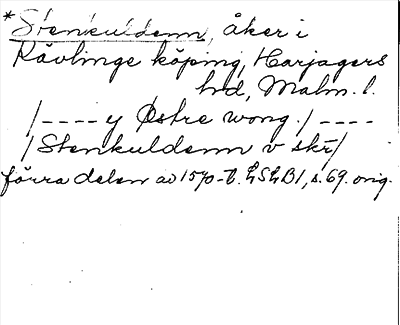 *Stenkuldenn, åker i
Kävlinge köping, Harjagers
hd, Malm. l.
/---- y Østre wong. / ----
/Stenkuldenn v skr/
förra delen av 1570-t. LSLB1, s. 69. orig.